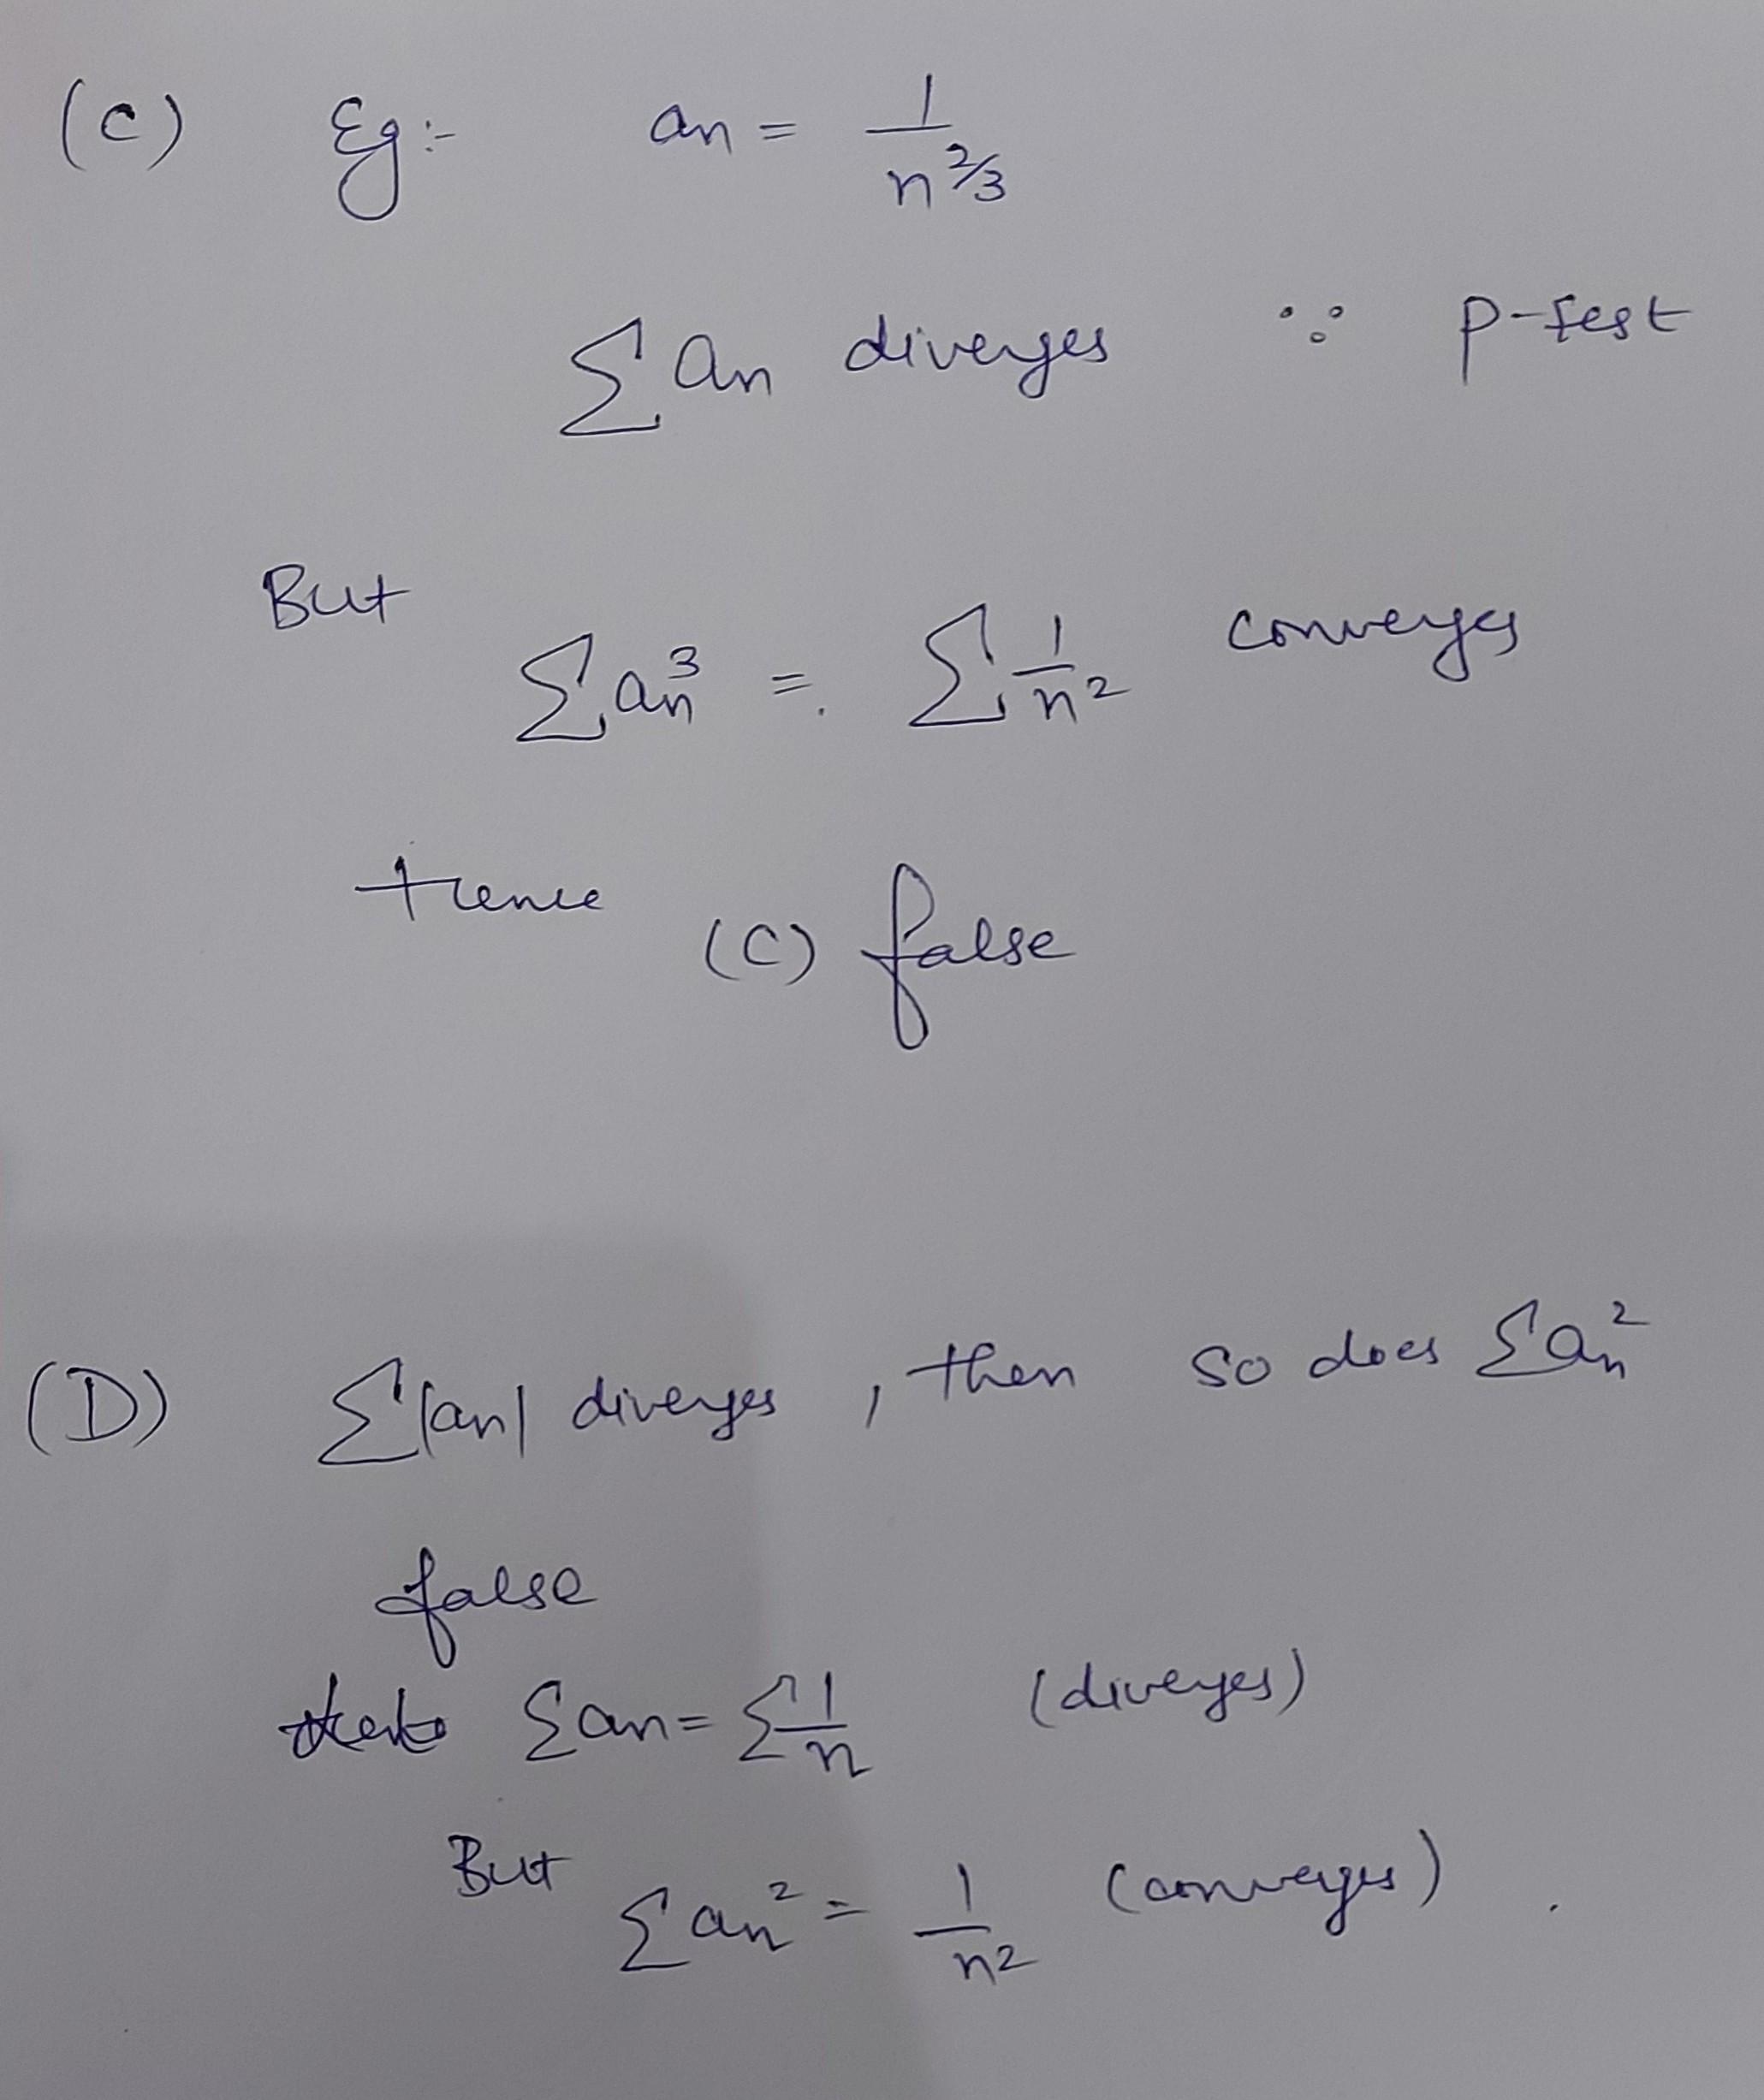 (C) Eg:- an = 1/n^2/3
∑an diverges ∵ p-test
But ∑an^3 = ∑1/n^2 converges
Hence (C) false
(D) ∑|an| diverges, then so does ∑an^2
false
∑an = ∑1/n (diverges)
But ∑an^2 = 1/n^2 (converges).